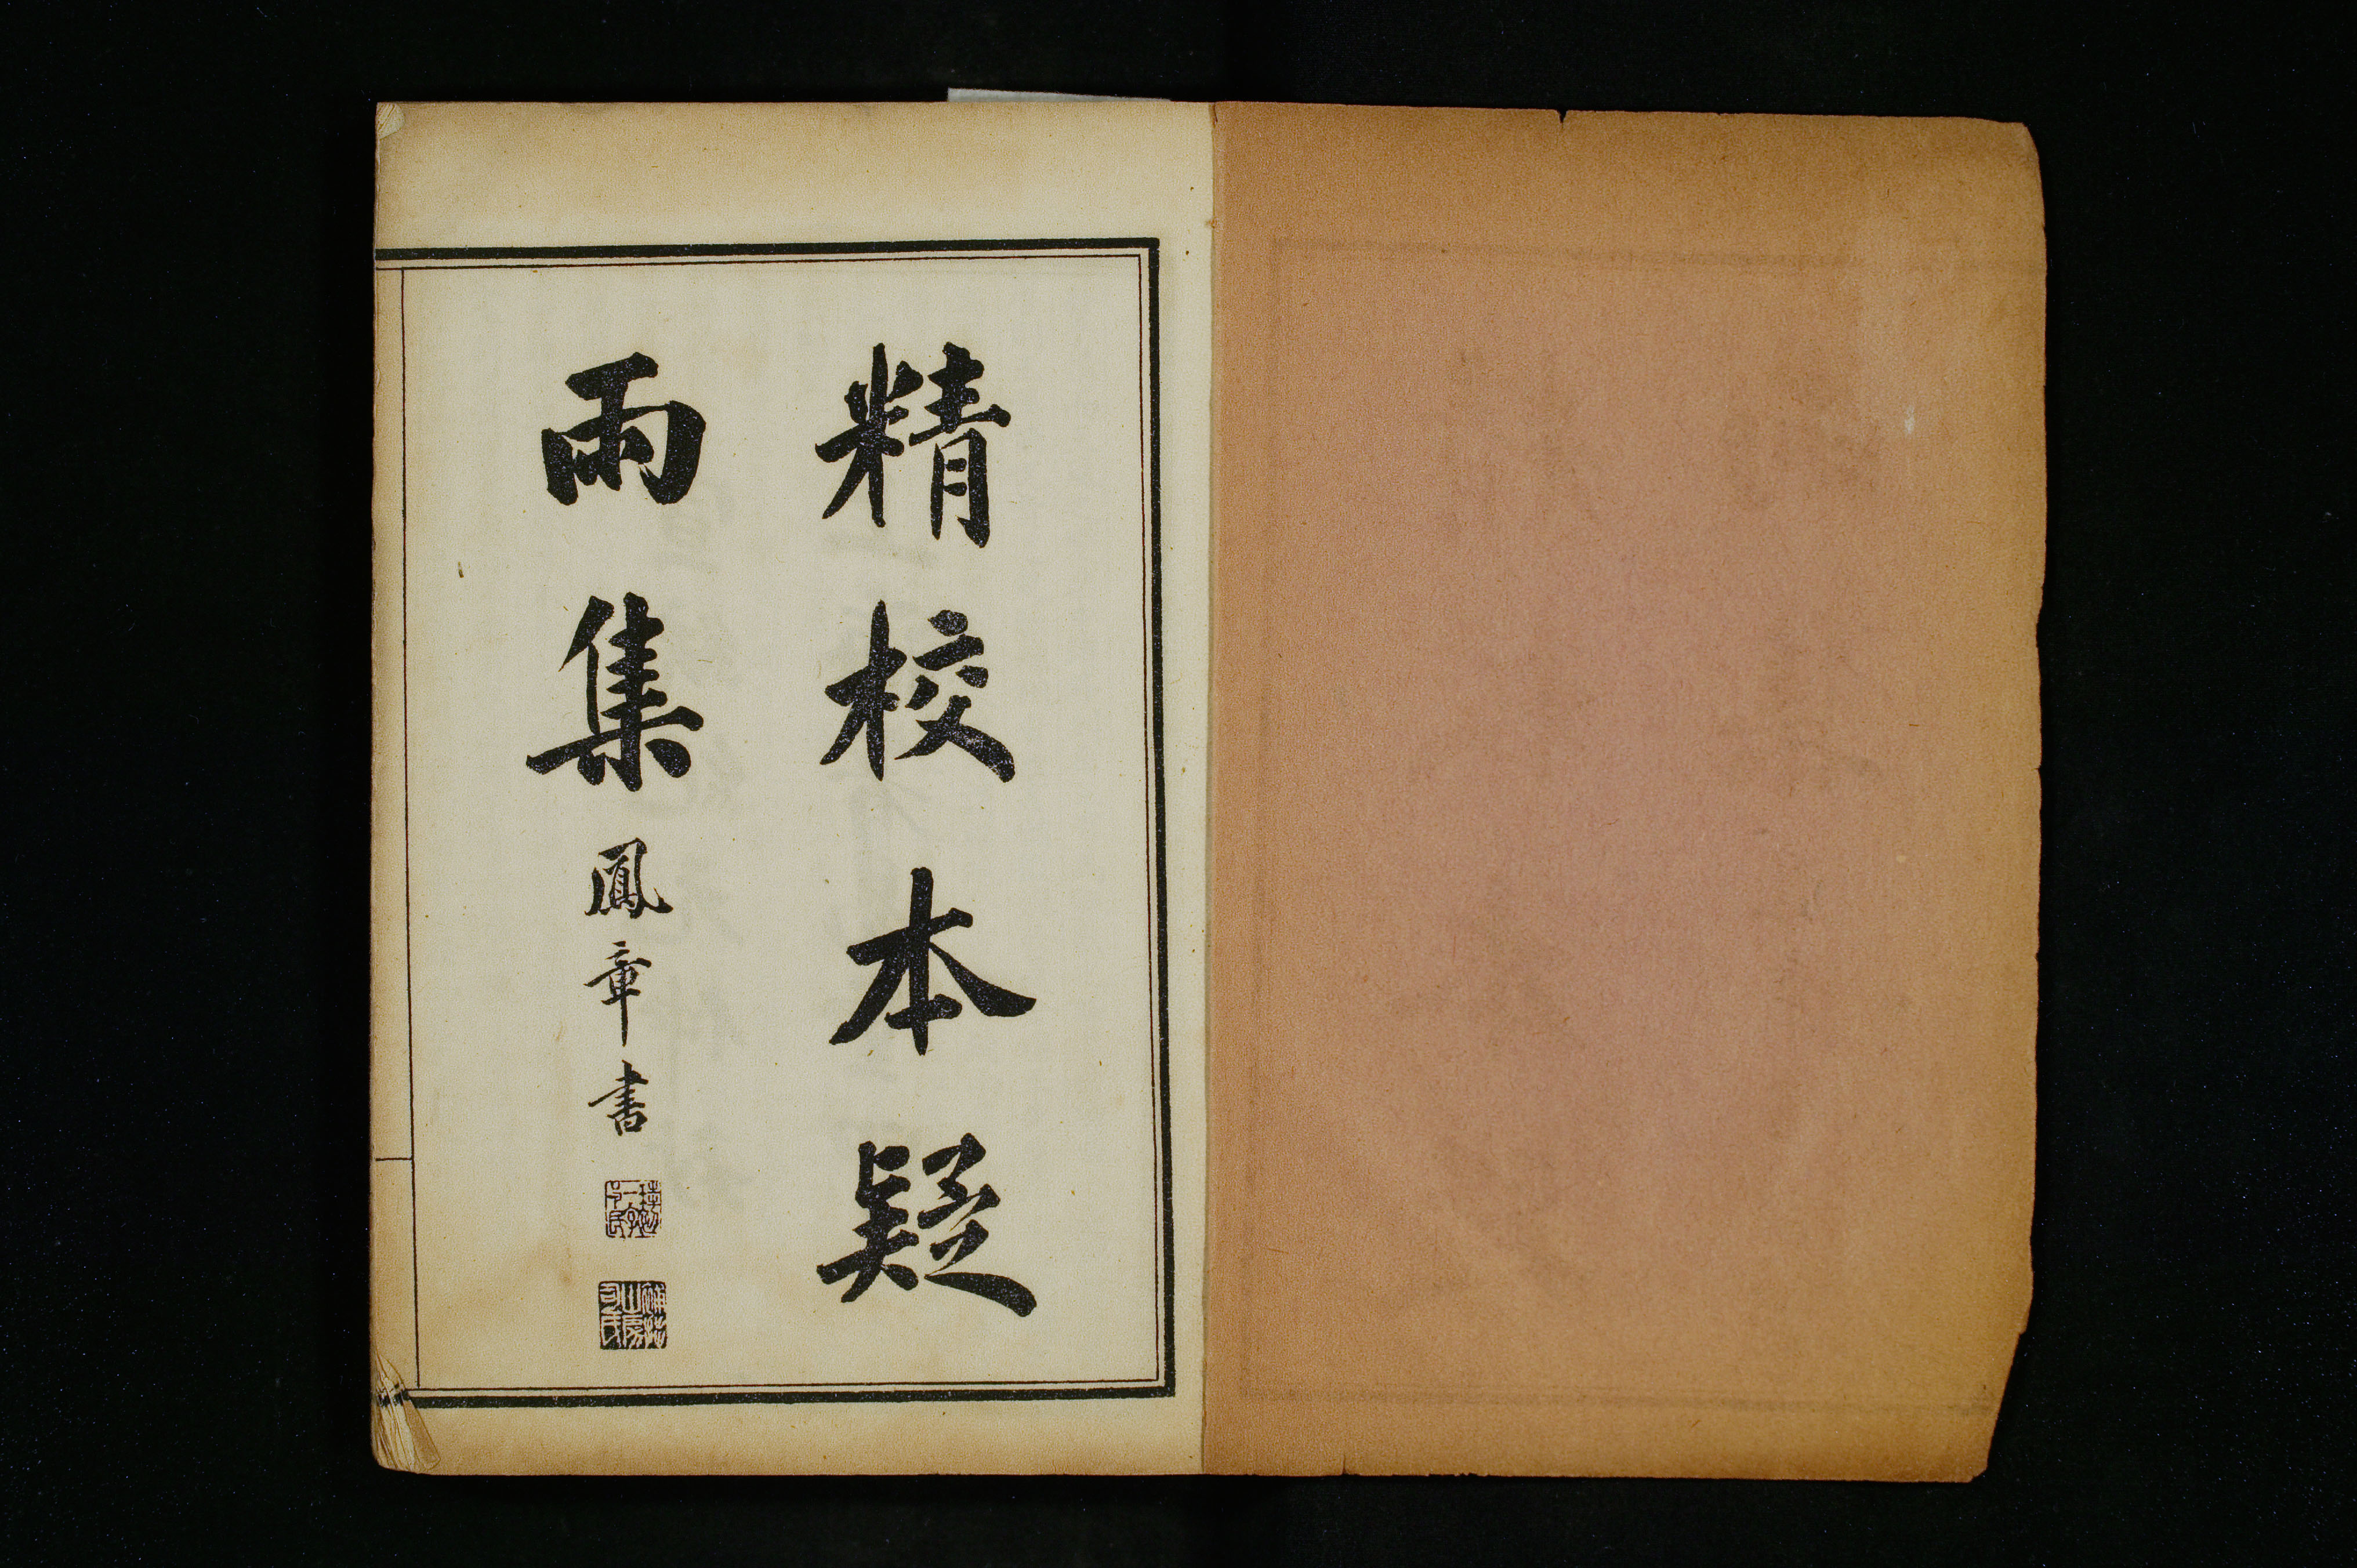 精校本疑
雨集
鳳章書